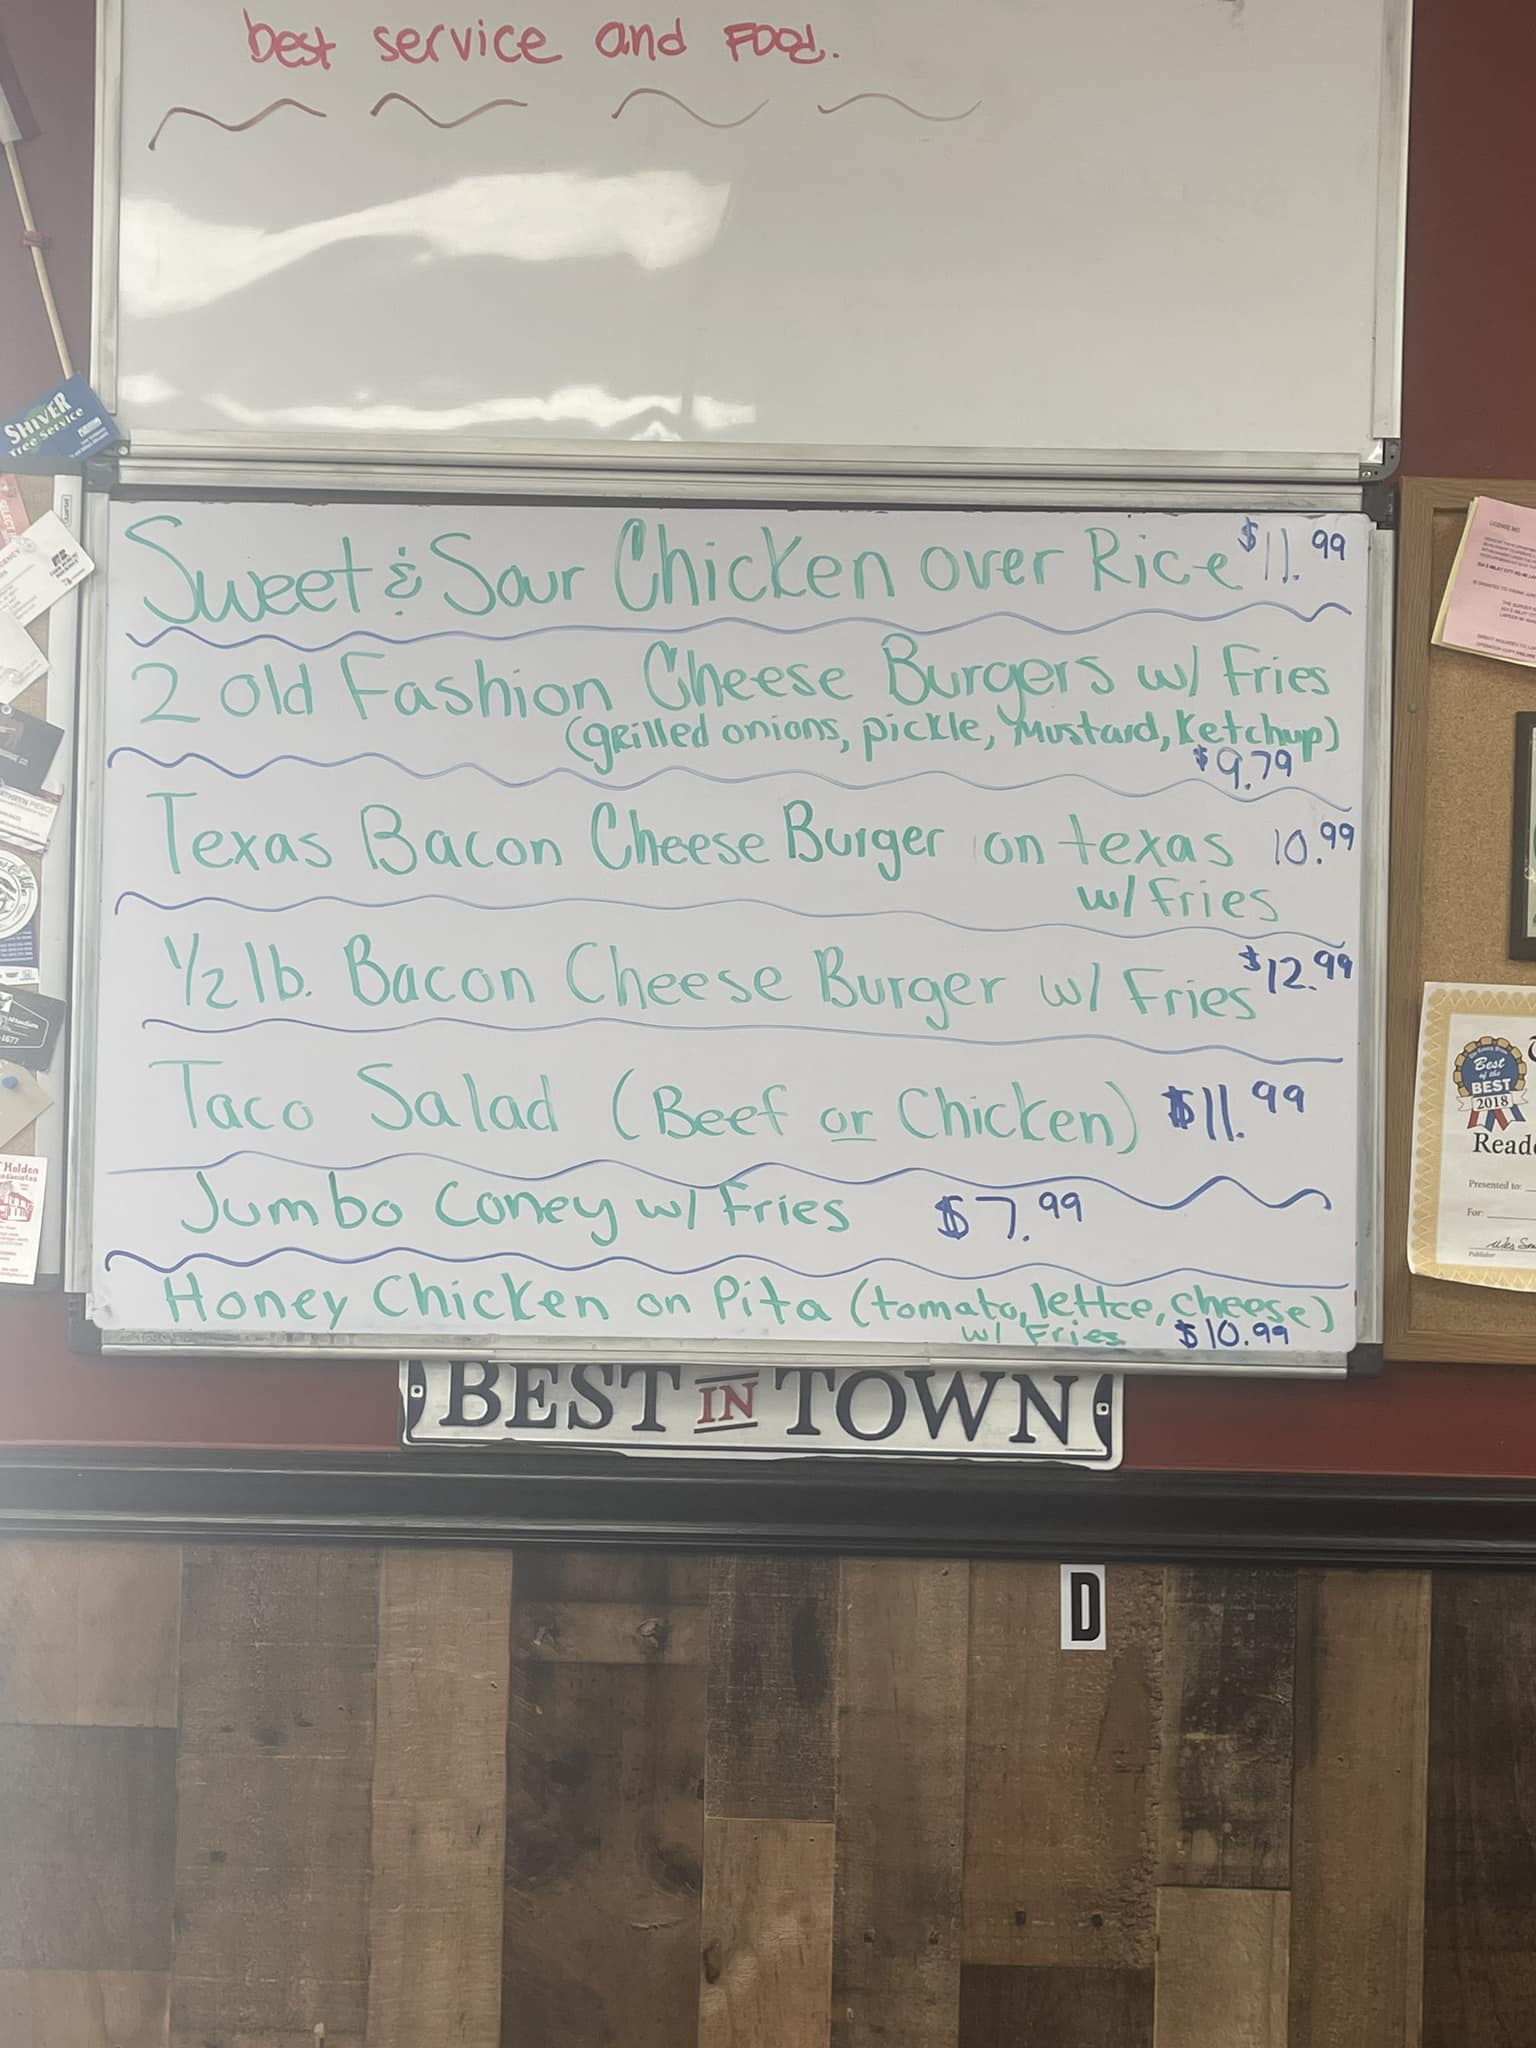 best service and FOOD.
Sweet & Sour Chicken over Rice $11.99
2 Old Fashion Cheese Burgers w/ Fries
(grilled onions, pickle, Mustard, Ketchup)
$9.79
Texas Bacon Cheese Burger on texas 10.99
w/ Fries
1/2 lb. Bacon Cheese Burger w/ Fries $12.99
Taco Salad (Beef or Chicken) $11.99
Jumbo Coney w/ Fries $7.99
Honey Chicken on Pita (tomato, lettce, cheese)
w/ Fries $10.99
BEST IN TOWN
D
SHIVER
Tree Service
Holden
1677
LICENSE NO
Best
of the
BEST
2018
Reade
Presented to:
For:
Publisher